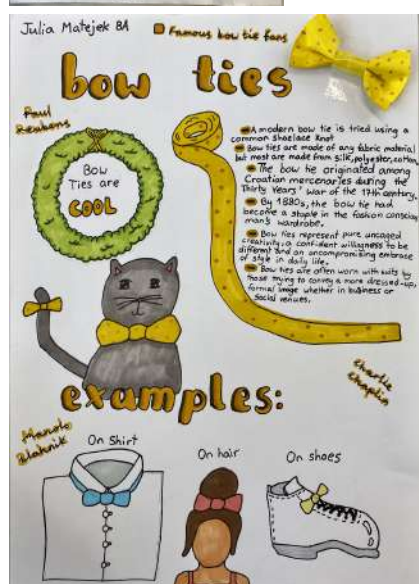 Julia Matejek 8A
Famous bow tie fans
bow ties
Paul
Reubens
Bow
Ties are
COOL
A modern bow tie is tried using a
common shoelace knot
Bow ties are made of any fabric material
but most are made from silk, polyester, cotton
The bow tie originated among
Croatian mercenaries during the
Thirty Years' war of the 17th century.
By 1880s, the bow tie had
become a staple in the fashion conscious
man's wardrobe.
Bow ties represent pure uncaged
creativity, a confident willingness to be
different and an uncompromising embrace
of style in daily life.
Bow ties are often worn with suits by
those trying to convey a more dressed-up,
formal image whether in business or
social venues.
Charlie
Chaplin
examples:
Manolo
Blahnik
On shirt
On hair
On shoes